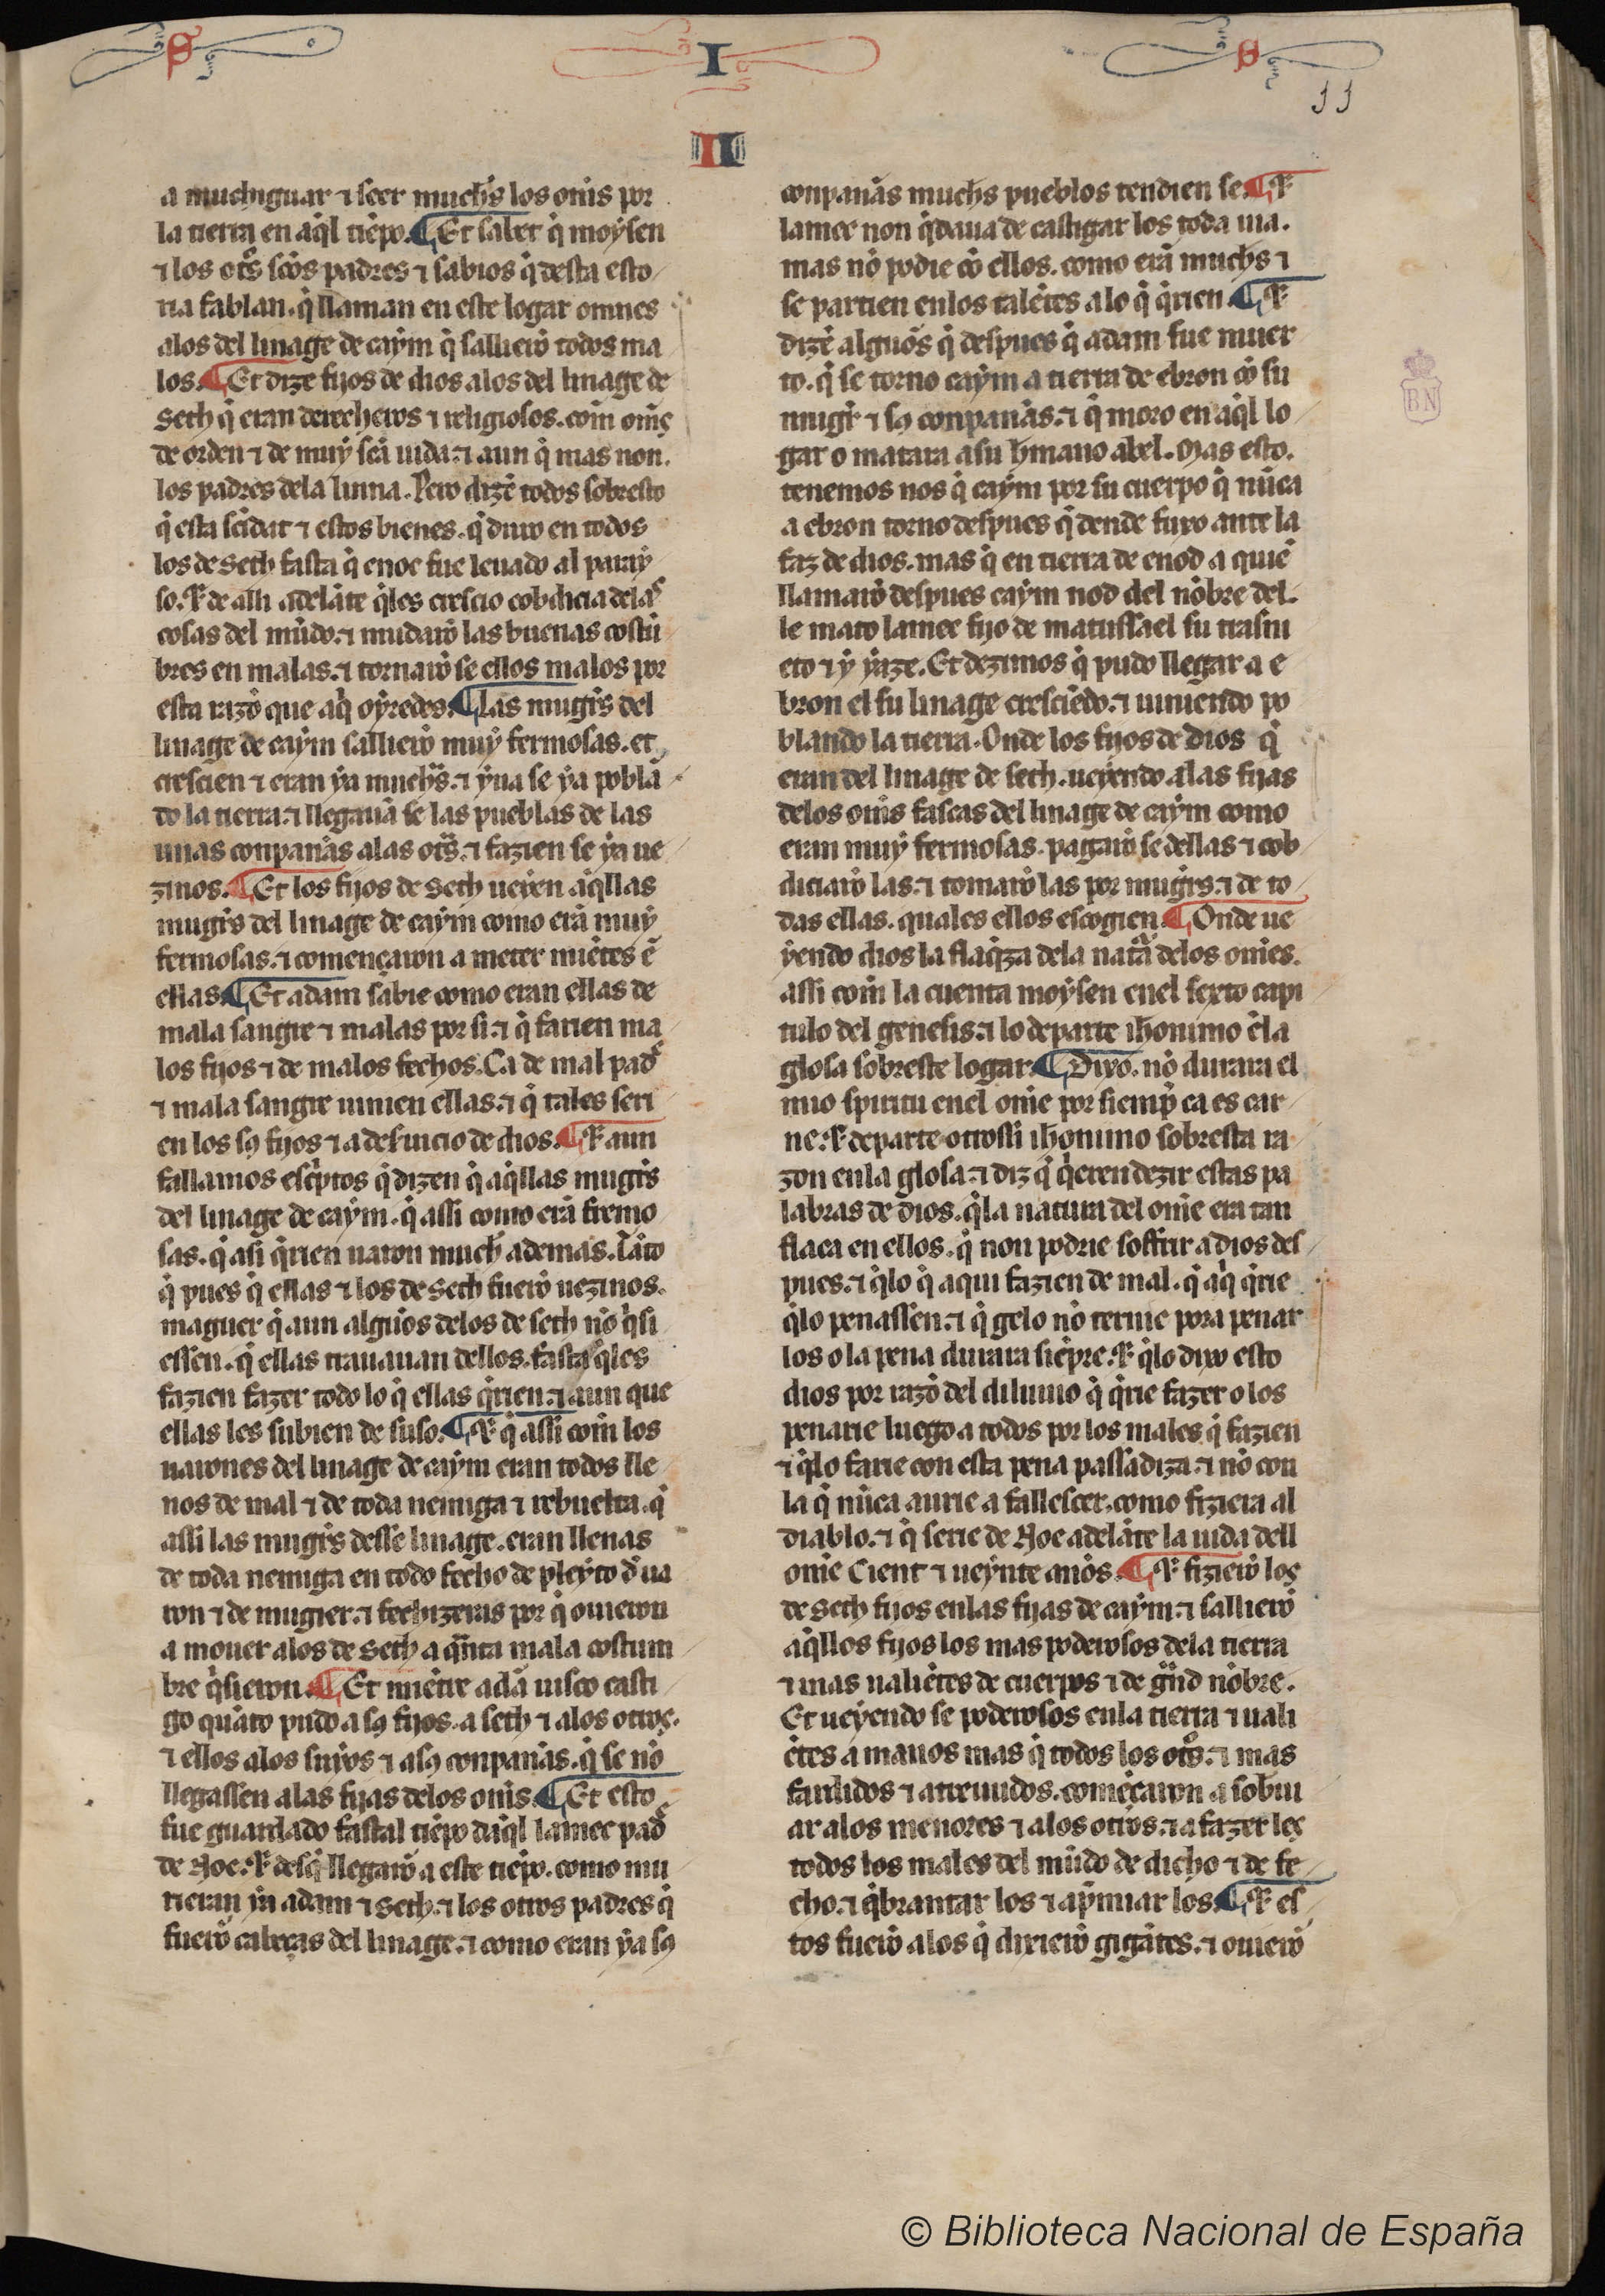 S I S
11
II
a muchiguar ⁊ seer muchͦs los om̃s por
la tierra en aq̃l tiẽpo. ¶ Et sabet q̃ moysen
⁊ los otͦs scõs padres ⁊ sabios q̃ desta esto
ria fablan. q̃ llaman en este logar omnes
alos del linage de caym q̃ sallierõ todos ma
los. ¶ Et dize fijos de dios alos del linage de
Seth q̃ eran derecheros ⁊ religiosos. com̃ om̃s
de orden ⁊ de muy scã uida. ⁊ aun q̃ mas non.
los padres dela linna. Pero dizẽ todos sobresto
q̃ esta scĩdat ⁊ estos bienes. q̃ duro en todos
los de Seth fasta q̃ enoc fue leuado al paray
so. ⁊ de alli adelãte q̃les crescio cobdicia delas
cosas del mũdo. ⁊ mudarõ las buenas costũ
bres en malas. ⁊ tornarõ se ellos malos por
esta razõ que aq̃ oyredes. ¶ Las mugr̃s del
linage de caym sallierõ muy fermosas. et
crescien ⁊ eran ya muchͣs. ⁊ yua se ya poblã
do la tierra. ⁊ llegauã se las pueblas de las
unas conpan̄as alas otͣs. ⁊ fazien se ya ue
zinos. ¶ Et los fijos de Seth ueyen aq̃llas
mugr̃s del linage de caym como erã muy
fermosas. ⁊ començaron a meter miẽtes ẽ
ellas. ¶ Et adam sabie como eran ellas de
mala sangre ⁊ malas por si. ⁊ q̃ farien ma
los fijos ⁊ de malos fechos. Ca de mal padͤ
⁊ mala sangre uinien ellas. ⁊ q̃ tales seri
en los sꝰ fijos ⁊ a deseruicio de dios. ¶ ⁊ aun
fallamos esc̃ptos q̃ dizen q̃ aq̃llas mugr̃s
del linage de caym. q̃ assi como erã fremo
sas. q̃ asi q̃rien uaron much̃ ademas. Tãto
q̃ pues q̃ ellas ⁊ los de Seth fuerõ uezinos.
maguer q̃ aun algũos delos de seth nõ q̃si
essen. q̃ ellas trauauan dellos. fasta q̃les
fazien fazer todo lo q̃ ellas q̃rien. ⁊ aun que
ellas les subien de suso. ¶ ⁊ q̃ assi com̃ los
uarones del linage de caym eran todos lle
nos de mal ⁊ de toda nemiga ⁊ rebuelta. q̃
assi las mugr̃s desse linage. eran llenas
de toda nemiga en todo fecho de pleyto d̃ ua
ron ⁊ de mugier. ⁊ fechizeras por q̃ ouieron
a mouer alos de Seth a qͣnta mala costum
bre q̃sieron. ¶ Et miẽtre adã uisco casti
go quãto pudo a sꝰ fijos. a seth ⁊ alos otros.
⁊ ellos alos suyos ⁊ a sꝰ conpan̄as. q̃ se nõ
llegassen alas fijas delos om̃s. ¶ Et esto
fue guardado fastal tiẽpo daq̃l lamec padͤ
de Noe. ⁊ desq̃ llegarõ a este tiẽpo. como mu
rieran ya adam ⁊ Seth. ⁊ los otros padres q̃
fuerõ cabeças del linage. ⁊ como eran ya sꝰ
conpan̄as muchͦs pueblos tendien se. ¶ ⁊
lamec non q̃daua de castigar los toda uia.
mas nõ podie cõ ellos. como erã muchͦs ⁊
se partien enlos talẽtes alo q̃ q̃rien. ¶ ⁊
dizẽ algũos q̃ despues q̃ adam fue muer
to. q̃ se torno caym a tierra de ebron cõ su
mugr̃ ⁊ sꝰ conpan̄as. ⁊ q̃ moro en aq̃l lo
gar o matara a su h̃mano abel. Mas esto.
tenemos nos q̃ caym por su cuerpo q̃ nũca
a ebron torno despues q̃ dende fuxo ante la
faz de dios. mas q̃ en tierra de enod a quiẽ
llamarõ despues caym nod del nõbre del.
le mato lamec fijo de matussael su trasni
eto ⁊ y yaze. Et dezimos q̃ pudo llegar a e
bron el su linage cresciẽdo. ⁊ uiniendo po
blando la tierra. Onde los fijos de dios q̃
eran del linage de seth. ueyendo alas fijas
delos om̃s fascas del linage de caym como
eran muy fermosas. pagarõ se dellas ⁊ cob
diciarõ las. ⁊ tomarõ las por mugr̃s. ⁊ de to
das ellas. quales ellos escogien. ¶ Onde ue
yendo dios la flaq̃za dela natͣa delos om̃es.
assi com̃ la cuenta moysen enel sexto capi
tulo del genesis. ⁊ lo departe ih̃onimo ẽla
glosa sobreste logar. ¶ Dixo. nõ durara el
mio spiritu enel om̃e por siemp̃ ca es car
ne. ⁊ departe otrossi ih̃onimo sobresta ra
zon enla glosa. ⁊ diz q̃ q̃eren dezir estas pa
labras de dios. q̃la natura del om̃e era tan
flaca en ellos. q̃ non podrie soffrir a dios des
pues. ⁊ q̃lo q̃ aqui fazien de mal. q̃ aq̃ q̃rie
q̃lo penassen. ⁊ q̃ gelo nõ teruie pora penar
los o la pena durara siẽpre. ⁊ q̃lo dixo esto
dios por razõ del diluuio q̃ q̃rie fazer o los
penarie luego a todos por los males q̃ fazien
⁊ q̃lo farie con esta pena passadiza. ⁊ nõ con
la q̃ nũca aurie a fallescer. como fiziera al
diablo. ⁊ q̃ serie de Noe adelãte la uida dell
om̃e Cient ⁊ ueynte an̄os. ¶ ⁊ fizierõ los
de Seth fijos enlas fijas de caym. ⁊ sallierõ
aq̃llos fijos los mas poderosos dela tierra
⁊ mas ualiẽtes de cuerpos ⁊ de gͣnd nõbre.
Et ueyendo se poderosos enla tierra ⁊ uali
ẽtes a manos mas q̃ todos los otͦs. ⁊ mas
fardidos ⁊ atreuudos. comẽçaron a sob̃ui
ar alos menores ⁊ alos otros. ⁊ a fazer les
todos los males del mũdo de dicho ⁊ de fe
cho. ⁊ q̃brantar los ⁊ ap̃miar los. ¶ ⁊ es
tos fuerõ alos q̃ dixierõ gigãtes. ⁊ ouierõ
BN
© Biblioteca Nacional de España